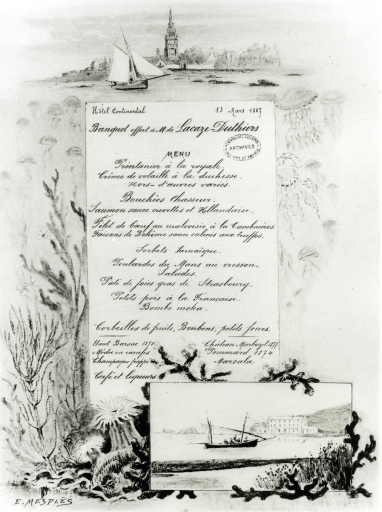 Hôtel Continental 13 Mars 1887
Banquet offert à M. de Lacaze-Duthiers
MENU
Printanier à la royale.
Crème de volaille à la duchesse.
Hors-d'œuvres variés.
Bouchées Chasseur.
Saumon sauce crevettes et Hollandaise.
Filet de bœuf au malvoisie à la Cambacérès
Faisans de Bohême sauce salmis aux truffes.
Sorbets Jamaïque.
Poulardes du Mans au cresson.
Salades.
Pâté de foies gras de Strasbourg.
Petits pois à la Française.
Bombe moka.
Corbeilles de fruits, Bonbons, petits fours.
Haut Barsac 1878. Château
Médoc en carafes Pommard 1874
Champagne frappé Marsala.
Café et liqueurs
ARCHIVES
E. MESPLÈS